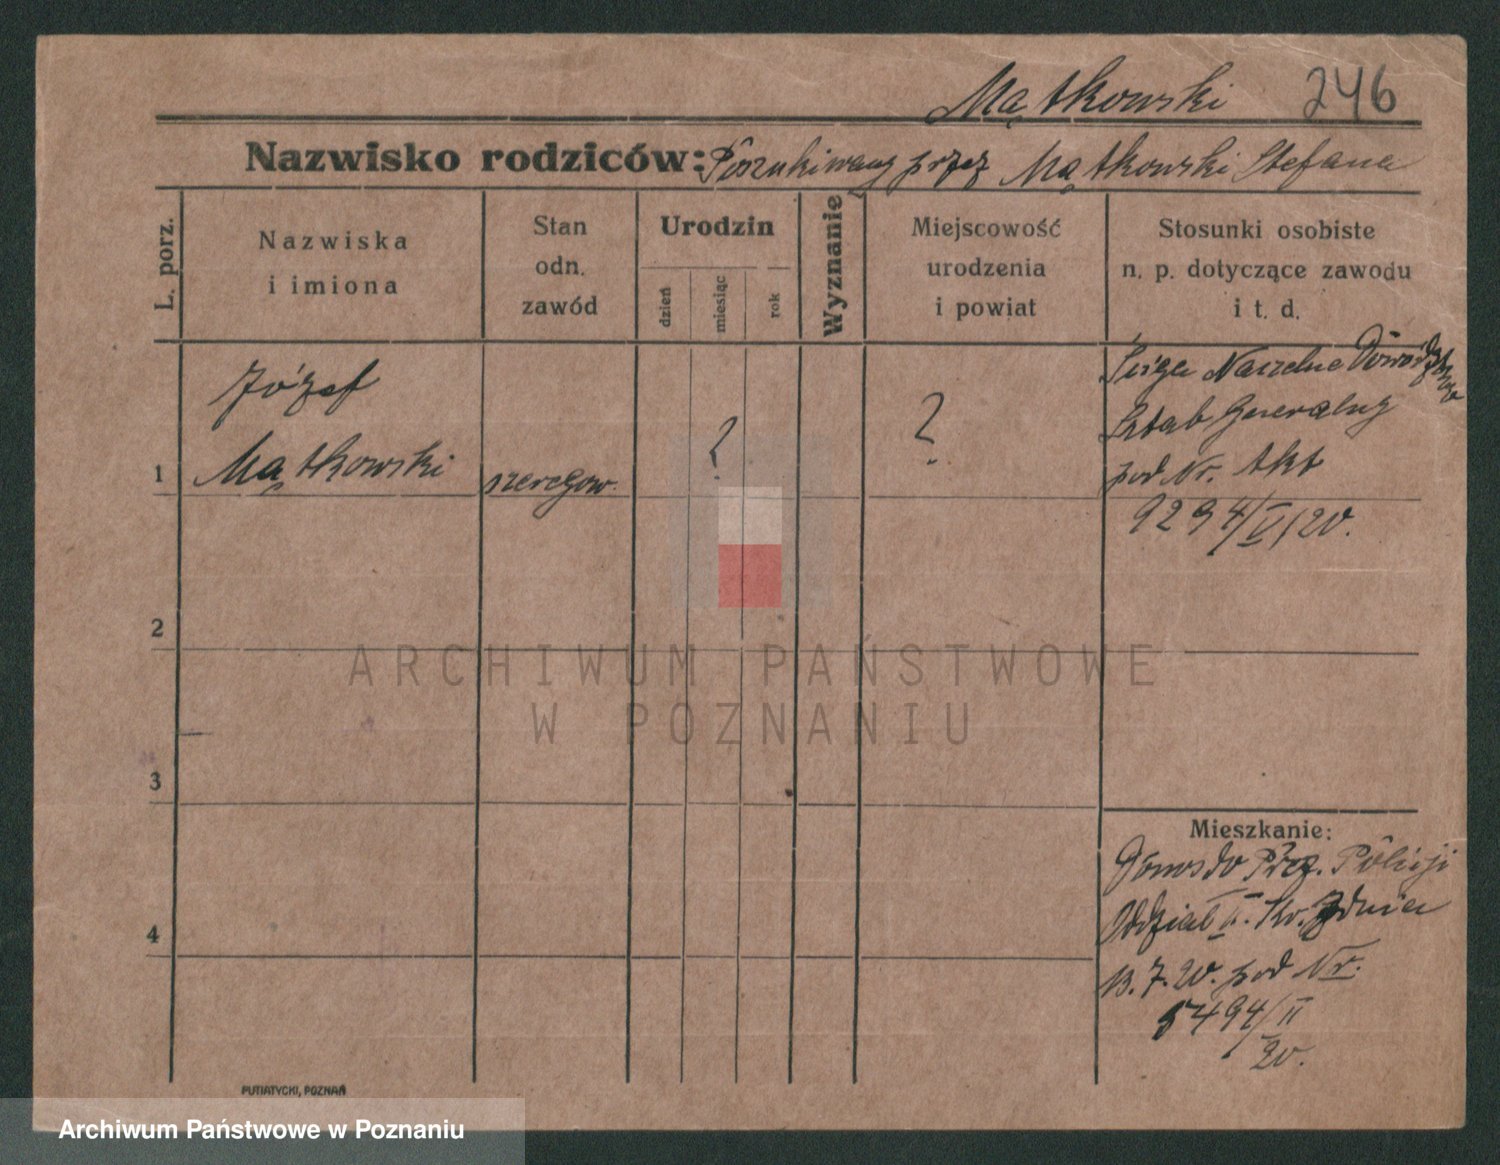 Mątkowski 246
Nazwisko rodziców: Poszukiwany przez Mątkowski Stefana
L. porz.
Nazwiska
i imiona
Stan
odn.
zawód
Urodzin
dzień
miesiąc
rok
Wyznanie
Miejscowość
urodzenia
i powiat
Stosunki osobiste
n. p. dotyczące zawodu
i t. d.
Józef
1 Mątkowski
szeregow.
?
?
Naczelne Dowództwo
Sztab Generalny
pod Nr. Akt
9294/V/20.
2
3
4
Mieszkanie:
Donos do Prez. Policji
Oddział II. Kr. z dnia
13.7.20. pod Nr.
5494/II
20.
PUTIATYCKI, POZNAŃ
ARCHIWUM PAŃSTWOWE
W POZNANIU
Archiwum Państwowe w Poznaniu